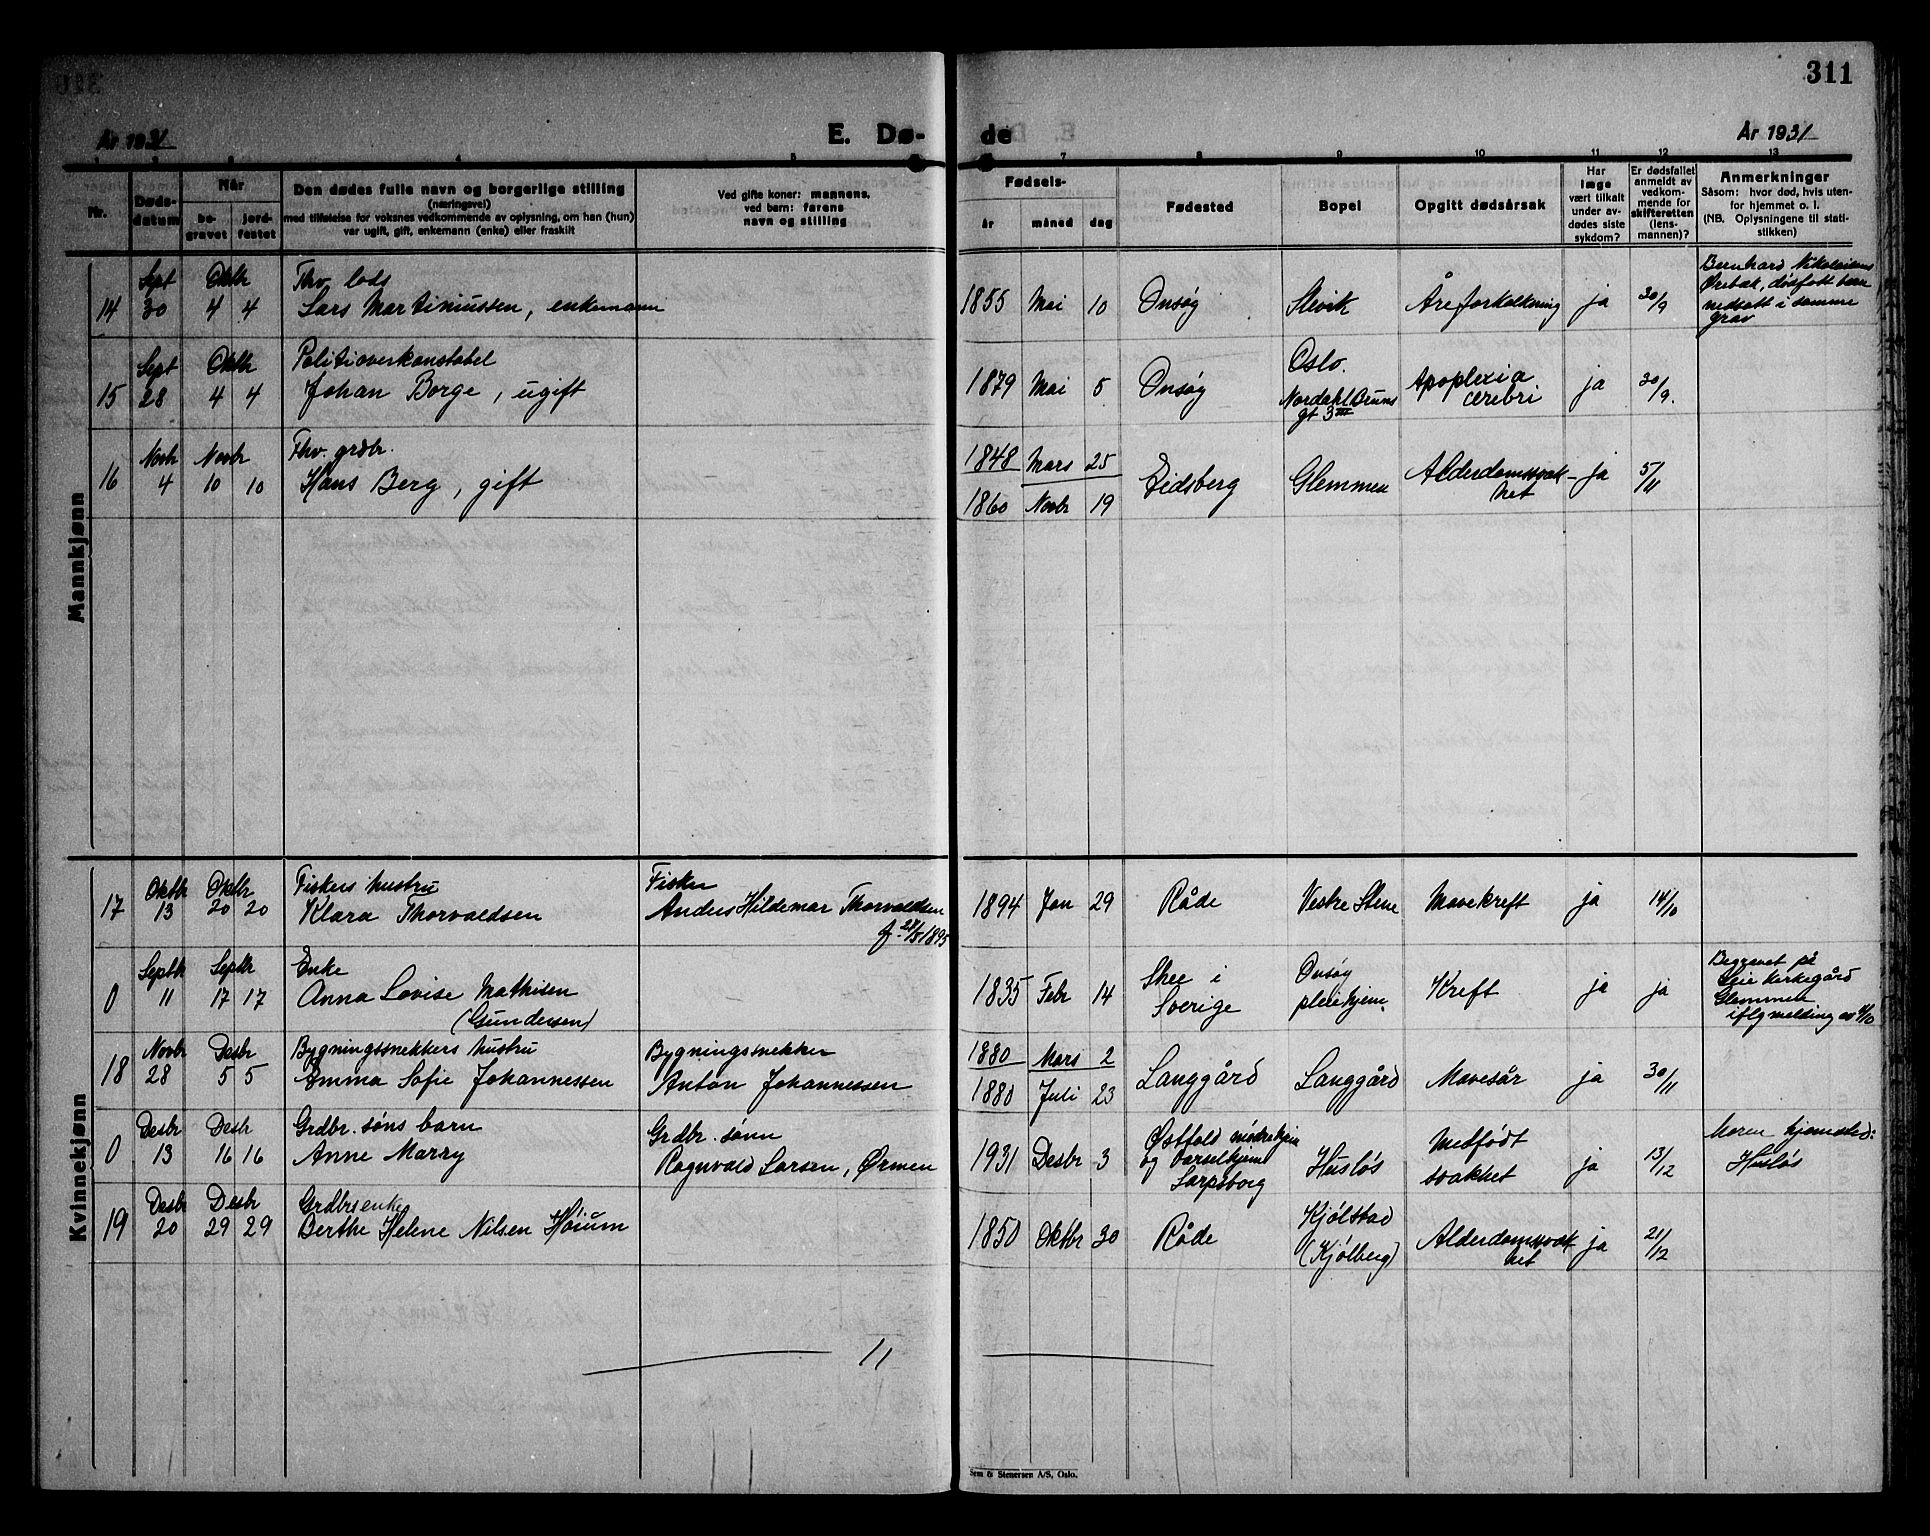 311
År 1931
E. Dø-
de
År 1931
Nr.
Døds-
datum
Når
be-
gravet
jord-
festet
Den dødes fulle navn og borgerlige stilling
(næringsvei)
med tilføielse for voksnes vedkommende av oplysning, om han (hun)
var ugift, gift, enkemann (enke) eller fraskilt
Ved gifte koner: mannens,
ved barn: farens
navn og stilling
Fødsels-
år
måned
dag
Fødested
Bopel
Opgitt dødsårsak
Har
læge
vært tilkalt
under av-
dødes siste
sykdom?
Er dødsfallet
anmeldt av
vedkom-
mende for
skifteretten
(lens-
mannen)?
Anmerkninger
Såsom: hvor død, hvis uten-
for hjemmet o. l.
(NB. Oplysningene til stati-
stikken)
Mannkjønn
14
Sept
30
Oktbr
4 4
Fhv. lods
Lars Martiniussen, enkemann
1855 Mai 10
Onsøy
Slevik
Åreforkalkning
ja
30/9
Bernhard Nikolaisens
dødfødt barn
nedsatt i samme
grav
15
Sept
28
Oktbr
4 4
Politioverkonstabel
Johan Borge, ugift
1879 Mai 5
Onsøy
Oslo.
Nordahl Bruns
gt 3 III
Apoplexia
cerebri
ja
30/9.
16
Novbr
4
Novbr
10 10
Fhv. grdbr.
Hans Berg, gift
1848 Mars 25
1860 Novbr 19
Eidsberg
Glemmen
Alderdomssvak-
het
ja
5/11
Kvinnekjønn
17
Oktbr
13
Oktbr
20 20
Fiskers hustru
Klara Thorvaldsen
Fisker
Anders Hildemar Thorvaldsen
f. 28/5 1895
1894 Jan 29
Råde
Vestre Stene
Mavekreft
ja
14/10
0
Septbr
11
Septbr
17 17
Enke
Anna Lovise Mathisen
(Gundersen)
1835 Febr 14
Skee i
Sverige
Onsøy
pleiehjem
Kreft
ja
ja
Begravet på
Leie kirkegård
Glemmen
iflg melding av
18
Novbr
28
Desbr
5 5
Bygningssnekkers hustru
Amma Sofie Johannessen
Bygningssnekker
Anton Johannessen
1880 Mars 2
1880 Juli 23
Langgård
Langgård
Mavesår
ja
30/11
0
Desbr
13
Desbr
16 16
Grdbr. søns barn
Anne Marry
Grdbr. sønn
Ragnvald Larsen, Ørmen
1931 Desbr 3
Østfold mødrehjem
og barselhjem
Sarpsborg
Husløs
Medfødt
svakhet
ja
13/12
Moren hjemsted:
Husløs
19
Desbr
20
Desbr
29 29
Grdbrs enke
Berthe Helene Nilsen Høium
1850 Oktbr 30
Råde
Kjølstad
(Kjølberg)
Alderdomssvak
het
ja
21/12
11
Sem & Stenersen A/S, Oslo.